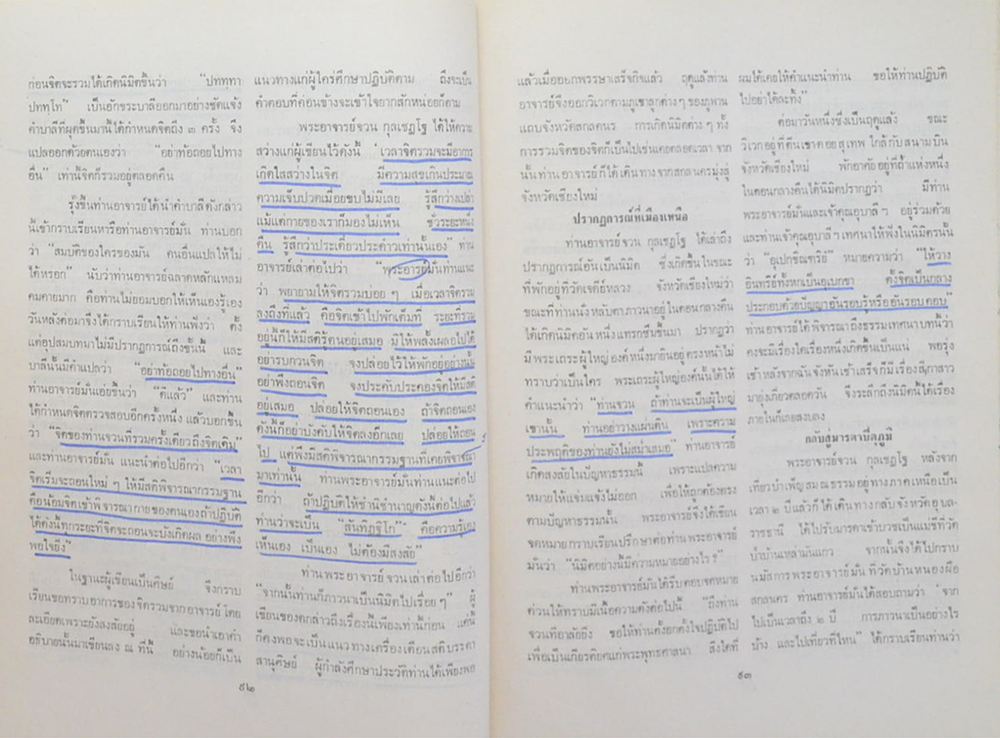 ก่อนจิตจะรวมได้เกิดนิมิตขึ้นว่า "ปททฺทา
ปททฺโท" เป็นอักขระบาลีออกมาอย่างชัดแจ้ง
คำบาลีที่ผุดขึ้นมานี้ได้กำหนดจิตถึง ๓ ครั้ง จึง
แปลออกด้วยตนเองว่า "อย่าท้อถอยไปทาง
อื่น" เท่านั้นจิตก็รวมอยู่ตลอดคืน
รุ่งขึ้นท่านอาจารย์ได้นำคำบาลีดังกล่าว
นี้เข้ากราบเรียนหารือท่านอาจารย์มั่น ท่านบอก
ว่า "สมบัติของใครของมัน คนอื่นแปลให้ไม่
ได้หรอก" นับว่าท่านอาจารย์ฉลาดหลักแหลม
คมคายมาก คือท่านไม่ยอมบอกให้เห็นเองรู้เอง
วันหลังต่อมาจึงได้กราบเรียนให้ท่านฟังว่า ตั้ง
แต่อุปสมบทมาไม่มีปรากฏการณ์ถึงขั้นนี้ และ
บาลีนั้นมีคำแปลว่า "อย่าท้อถอยไปทางอื่น"
ท่านอาจารย์มั่นเอ่ยขึ้นว่า "ดีแล้ว" และท่าน
ได้กำหนดจิตตรวจสอบอีกครั้งหนึ่ง แล้วบอกขึ้น
ว่า "จิตของท่านจวนที่รวมครั้งเดียวถึงจิตเดิม"
และท่านอาจารย์มั่น แนะนำต่อไปอีกว่า "เวลา
จิตเริ่มจะถอนใหม่ ๆ ให้มีสติพิจารณากรรมฐาน
คือน้อมจิตเข้าพิจารณากายของตนเองถ้าปฏิบัติ
ได้ดังนี้ทุกระยะที่จิตจะถอนจะบังเกิดผล อย่างพึง
พอใจยิ่ง"
ในฐานะผู้เขียนเป็นศิษย์ จึงกราบ
เรียนขอทราบอาการของจิตรวมจากอาจารย์ โดย
ละเอียดเพราะยังสงสัยอยู่ และขอนำเอาคำ
อธิบายนั้นมาเขียนลง ณ ที่นี้ อย่างน้อยก็เป็น
แนวทางแก่ผู้ใคร่ศึกษาปฏิบัติตาม ถึงจะเป็น
คำตอบที่ค่อนข้างจะเข้าใจยากสักหน่อยก็ตาม
พระอาจารย์จวน กุลเชฏฺโฐ ได้ให้ความ
สว่างแก่ผู้เขียนไว้ดังนี้ "เวลาจิตรวมจะมีอาการ
เกิดใสสว่างในจิต มีความสุขเกินประมาณ
ความเจ็บปวดเมื่อยขบไม่มีเลย รู้สึกว่างเปล่า
แม้แต่กายของเราก็มองไม่เห็น ชั่วระยะหนึ่ง
คืน รู้สึกว่าประเดี๋ยวประด๋าวเท่านั้นเอง" ท่าน
อาจารย์เล่าต่อไปว่า "พระอาจารย์มั่นท่านแนะ
ว่า พยายามให้จิตรวมบ่อย ๆ เมื่อเวลาจิตรวม
ลงถึงที่แล้ว คือจิตเข้าไปพักเต็มที่ ระยะที่รวม
อยู่นี้ก็ให้มีสติรู้ตนอยู่เสมอ มิให้พลั้งเผลอไปได้
อย่ารบกวนจิต จงปล่อยไว้ให้พักอยู่อย่างนั้น
อย่าพึงถอนจิต จงประคับประคองจิตให้มีสติ
อยู่เสมอ ปล่อยให้จิตถอนเอง ถ้าจิตถอนเอง
ดังนี้ก็อย่าบังคับให้จิตลงอีกเลย ปล่อยให้ถอน
ไป แต่พึงมีสติพิจารณากรรมฐานที่เคยพิจารณา
มาเท่านั้น ท่านพระอาจารย์มั่นท่านแนะต่อไป
อีกว่า ถ้าปฏิบัติให้ชำนิชำนาญดังนี้ต่อไปแล้ว
ท่านว่าจะเป็น "สันทิฏฐิโก" คือความรู้เอง
เห็นเอง เป็นเอง ไม่ต้องมีสงสัย"
ท่านพระอาจารย์จวนเล่าต่อไปอีกว่า
"จากนั้นท่านก็ภาวนาเป็นนิมิตไปเรื่อยๆ" ผู้
เขียนขอกล่าวถึงเรื่องนี้เพียงเท่านี้ก่อน แค่นี้
ก็คงพอจะเป็นแนวทางเครื่องเตือนสติบรรดา
สานุศิษย์ ผู้กำลังศึกษาประวัติท่านได้เพียงพอ
๙๒
แล้วเมื่อออกพรรษาเสร็จกิจแล้ว ฤดูแล้งท่าน
อาจารย์จึงออกวิเวกตามภูเขาลูกต่างๆ ของภูพาน
แถบจังหวัดสกลนคร การเกิดนิมิตต่าง ๆ ทั้ง
การรวมจิตของจิตก็เป็นไปเช่นเคยตลอดเวลา จาก
นั้นท่านอาจารย์ก็ได้เดินทางจากสกลนครมุ่งสู่
จังหวัดเชียงใหม่
ปรากฏการณ์ที่เมืองเหนือ
ท่านอาจารย์จวน กุลเชฏฺโฐ ได้เล่าถึง
ปรากฏการณ์อันเป็นนิมิต ซึ่งเกิดขึ้นในขณะ
ที่พักอยู่ที่วัดเจดีย์หลวง จังหวัดเชียงใหม่ว่า
ขณะที่ท่านนั่งหลับตาภาวนาอยู่ในตอนกลางคืน
ได้เกิดนิมิตอันหนึ่งแทรกซึ้งขึ้นมา ปรากฏว่า
มีพระเถระผู้ใหญ่องค์หนึ่งมายืนอยู่ตรงหน้าไม่
ทราบว่าเป็นใคร พระเถระผู้ใหญ่องค์นั้นได้ให้
คำแนะนำว่า "ท่านจวน ถ้าท่านจะเป็นผู้ใหญ่
เขานั้น ท่านอย่าวางแผ่นดิน เพราะความ
ประพฤติของท่านยังไม่สม่ำเสมอ" ท่านอาจารย์
เกิดสงสัยในปัญหาธรรมนี้ เพราะแปลความ
หมายให้แจ่มแจ้งไม่ออก เพื่อให้ถูกต้องตรง
ตามปัญหาธรรมนั้น พระอาจารย์จึงได้เขียน
จดหมายกราบเรียนปรึกษาต่อท่านพระอาจารย์
มั่นว่า "นิมิตอย่างนี้มีความหมายอย่างไร ?"
ท่านพระอาจารย์มั่นได้รับตอบจดหมาย
ด่วนให้ทราบมีเนื้อความดังต่อไปนี้ "ถึงท่าน
จวนที่อาลัยยิ่ง ขอให้ท่านตั้งอกตั้งใจปฏิบัติไป
เพื่อเป็นเกียรติยศแก่พระพุทธศาสนา สิ่งใดที่
ผมได้เคยให้คำแนะนำท่าน ขอให้ท่านปฏิบัติ
ไปอย่าได้ละทิ้ง"
ต่อมาวันหนึ่งซึ่งเป็นฤดูแล้ง ขณะ
วิเวกอยู่ที่ตีนเขาดอยสุเทพ ใกล้กับสนามบิน
จังหวัดเชียงใหม่ พักอาศัยอยู่ที่ถ้ำแห่งหนึ่ง
ในตอนกลางคืนได้นิมิตปรากฏว่า มีท่าน
พระอาจารย์มั่นและเจ้าคุณอุบาลีฯ อยู่ร่วมด้วย
และท่านเจ้าคุณอุบาลีฯเทศนาให้ฟังในนิมิตรนั้น
ว่า "อุเปกขินทรีย์" หมายความว่า "ให้วาง
อินทรีย์ทั้งหกเป็นอุเบกขา ตั้งจิตเป็นกลาง
ประกอบด้วยปัญญาอันรอบรู้หรืออันรอบคอบ"
ท่านอาจารย์ได้พิจารณาถึงธรรมเทศนาบทนี้ว่า
คงจะมีเรื่องใดเรื่องหนึ่งเกิดขึ้นเป็นแน่ พอรุ่ง
เช้าหลังจากฉันจังหันเช้าเสร็จก็มีเรื่องสีกาสาว
มายุ่งเกี่ยวตลอดวัน จึงระลึกถึงนิมิตนี้ได้เรื่อง
ภายในก็เลยสงบลง
กลับสู่มารดาปิตุภูมิ
พระอาจารย์จวน กุลเชฏฺโฐ หลังจาก
เที่ยวบำเพ็ญสมณธรรมอยู่ทางภาคเหนือเป็น
เวลา ๒ ปีแล้วก็ได้เดินทางกลับจังหวัดอุบล-
ราชธานี ได้ไปรับมารดาเข้าบวชเป็นแม่ชีที่วัด
ป่าบ้านเหล่ามันแกว จากนั้นจึงได้ไปกราบ
นมัสการพระอาจารย์มั่น ที่วัดบ้านหนองผือ
สกลนคร ท่านอาจารย์มั่นได้สอบถามว่า "จาก
ไปเป็นเวลาถึง ๒ ปี การภาวนาเป็นอย่างไร
บ้าง และไปเที่ยวที่ไหน" ได้กราบเรียนท่านว่า
๙๓